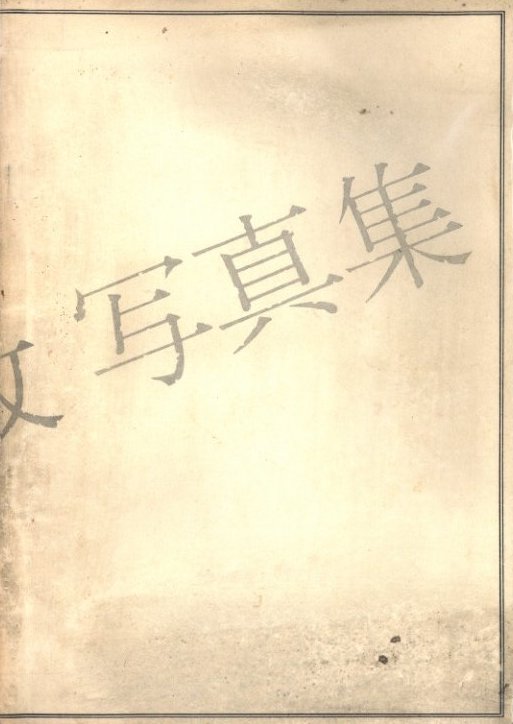 写真集